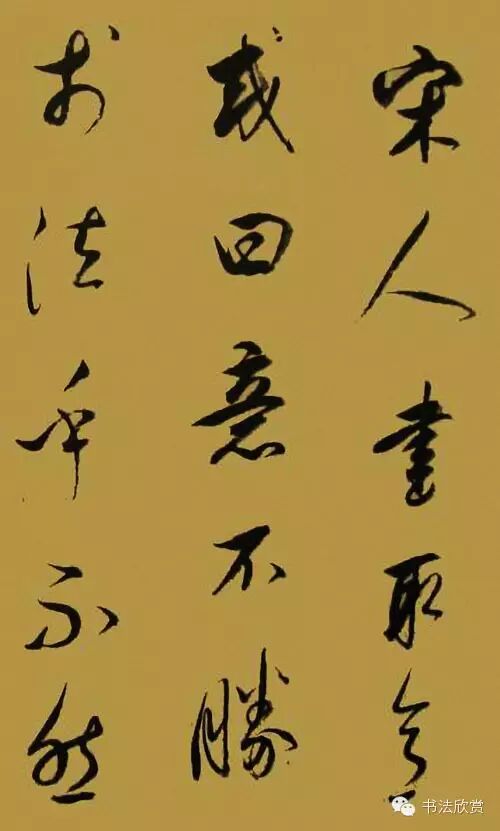 宋人書取意
或曰意不勝
於法乎不然
书法欣赏